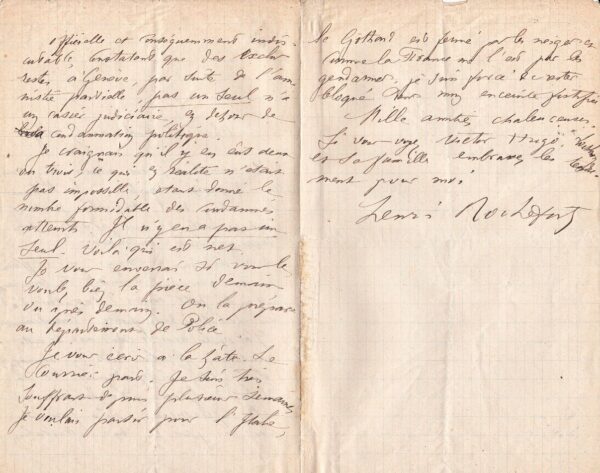 officielle et conséquemment indis-
cutable, constatant que des exclus
restés à Genève, par suite de l'am-
nistie partielle, pas un seul n'a
un casier judiciaire, en dehors de
la condamnation politique.
Je craignais qu'il y en eût deux
ou trois, ce qui en réalité n'était
pas impossible étant donné le
nombre formidable des condamnés
atteints. Il n'y en a pas un
seul. Voilà qui est net.
Je vous enverrai si vous le
voulez bien la pièce demain
ou après demain. On la prépare
au département de Police.
Je vous écris à la hâte. Le
courrier part. Je suis très
souffrant depuis plusieurs semaines
Je voulais partir pour l'Italie,
le Gothard est fermé par les neiges et
comme la France m'est par les
gendarmes, je suis forcé de rester
bloqué dans mon enceinte fortifiée
Mille amitiés chaleureuses.
Si vous voyez Victor Hugo,
et sa famille embrassez les
ment pour moi
Henri Rochefort